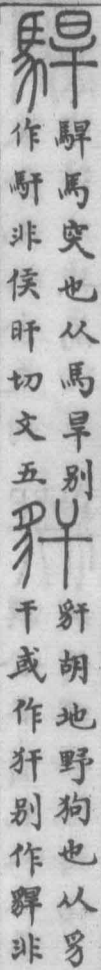 駻
駻馬突也从馬旱别
作馯非侯旰切文五
豻
豻胡地野狗也从豸
干或作犴别作貋非